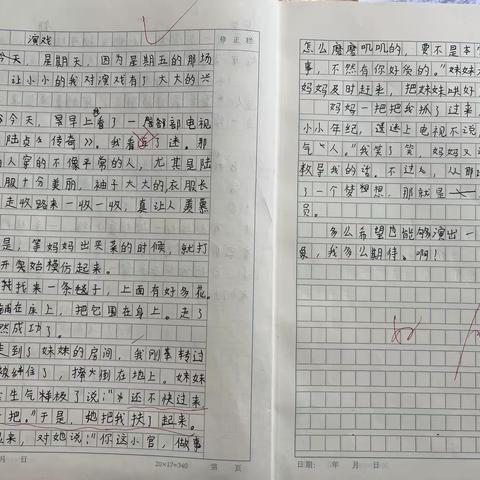 演戏
修正栏
今天，星期天，因为星期五的那场
，让小小的我对演戏有了大大的兴
今天，早早上看了一部电视
陆贞《传奇》。我看连了迷。那
人穿的不像平常的人，尤其是陆
服十分美丽，袖子大大的衣服长
走收路来一收一收，真让人羡慕
是，等妈妈出买菜的时候，就打
开始模仿起来。
我找来一条毯子，上面有好多花。
铺在床上，把它围在身上。走了
然成功了。
走到了妹妹的房间，我刚转过
被绊住了，摔倒在地上。妹妹
生气样极了说："还不快过来
把。"于是，她把我扶了起来。
起来，对她说："你这小官，做事
月 日
20×17=340
第 页
怎么磨磨叽叽的，要不是本
事，不然有你好受的。"妹妹
妈妈及时赶来，把妹妹哄好
妈妈一把把我抓了过来，
小小年纪，迷上电视不说，
气"人。"我笑了笑，妈妈又
教导我的话，不过，从那
了一个梦想，那就是
员。
多么希望也能够演出一
象，我多么期待。啊！
日期： 年 月 日